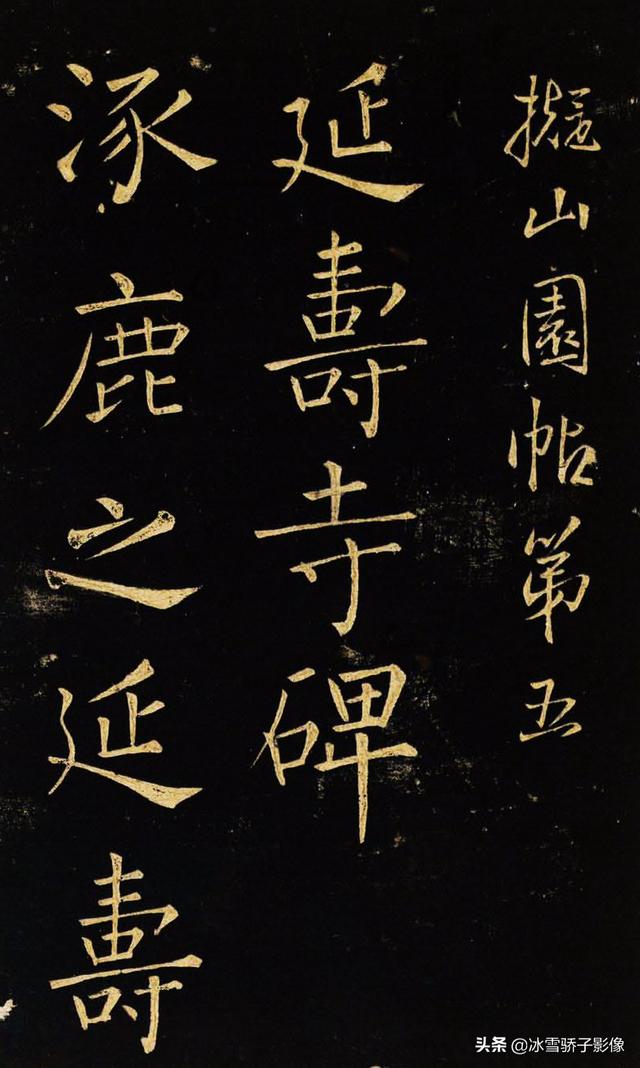 擬山園帖第五
延壽寺碑
涿鹿之延壽
头条 @冰雪骄子影像